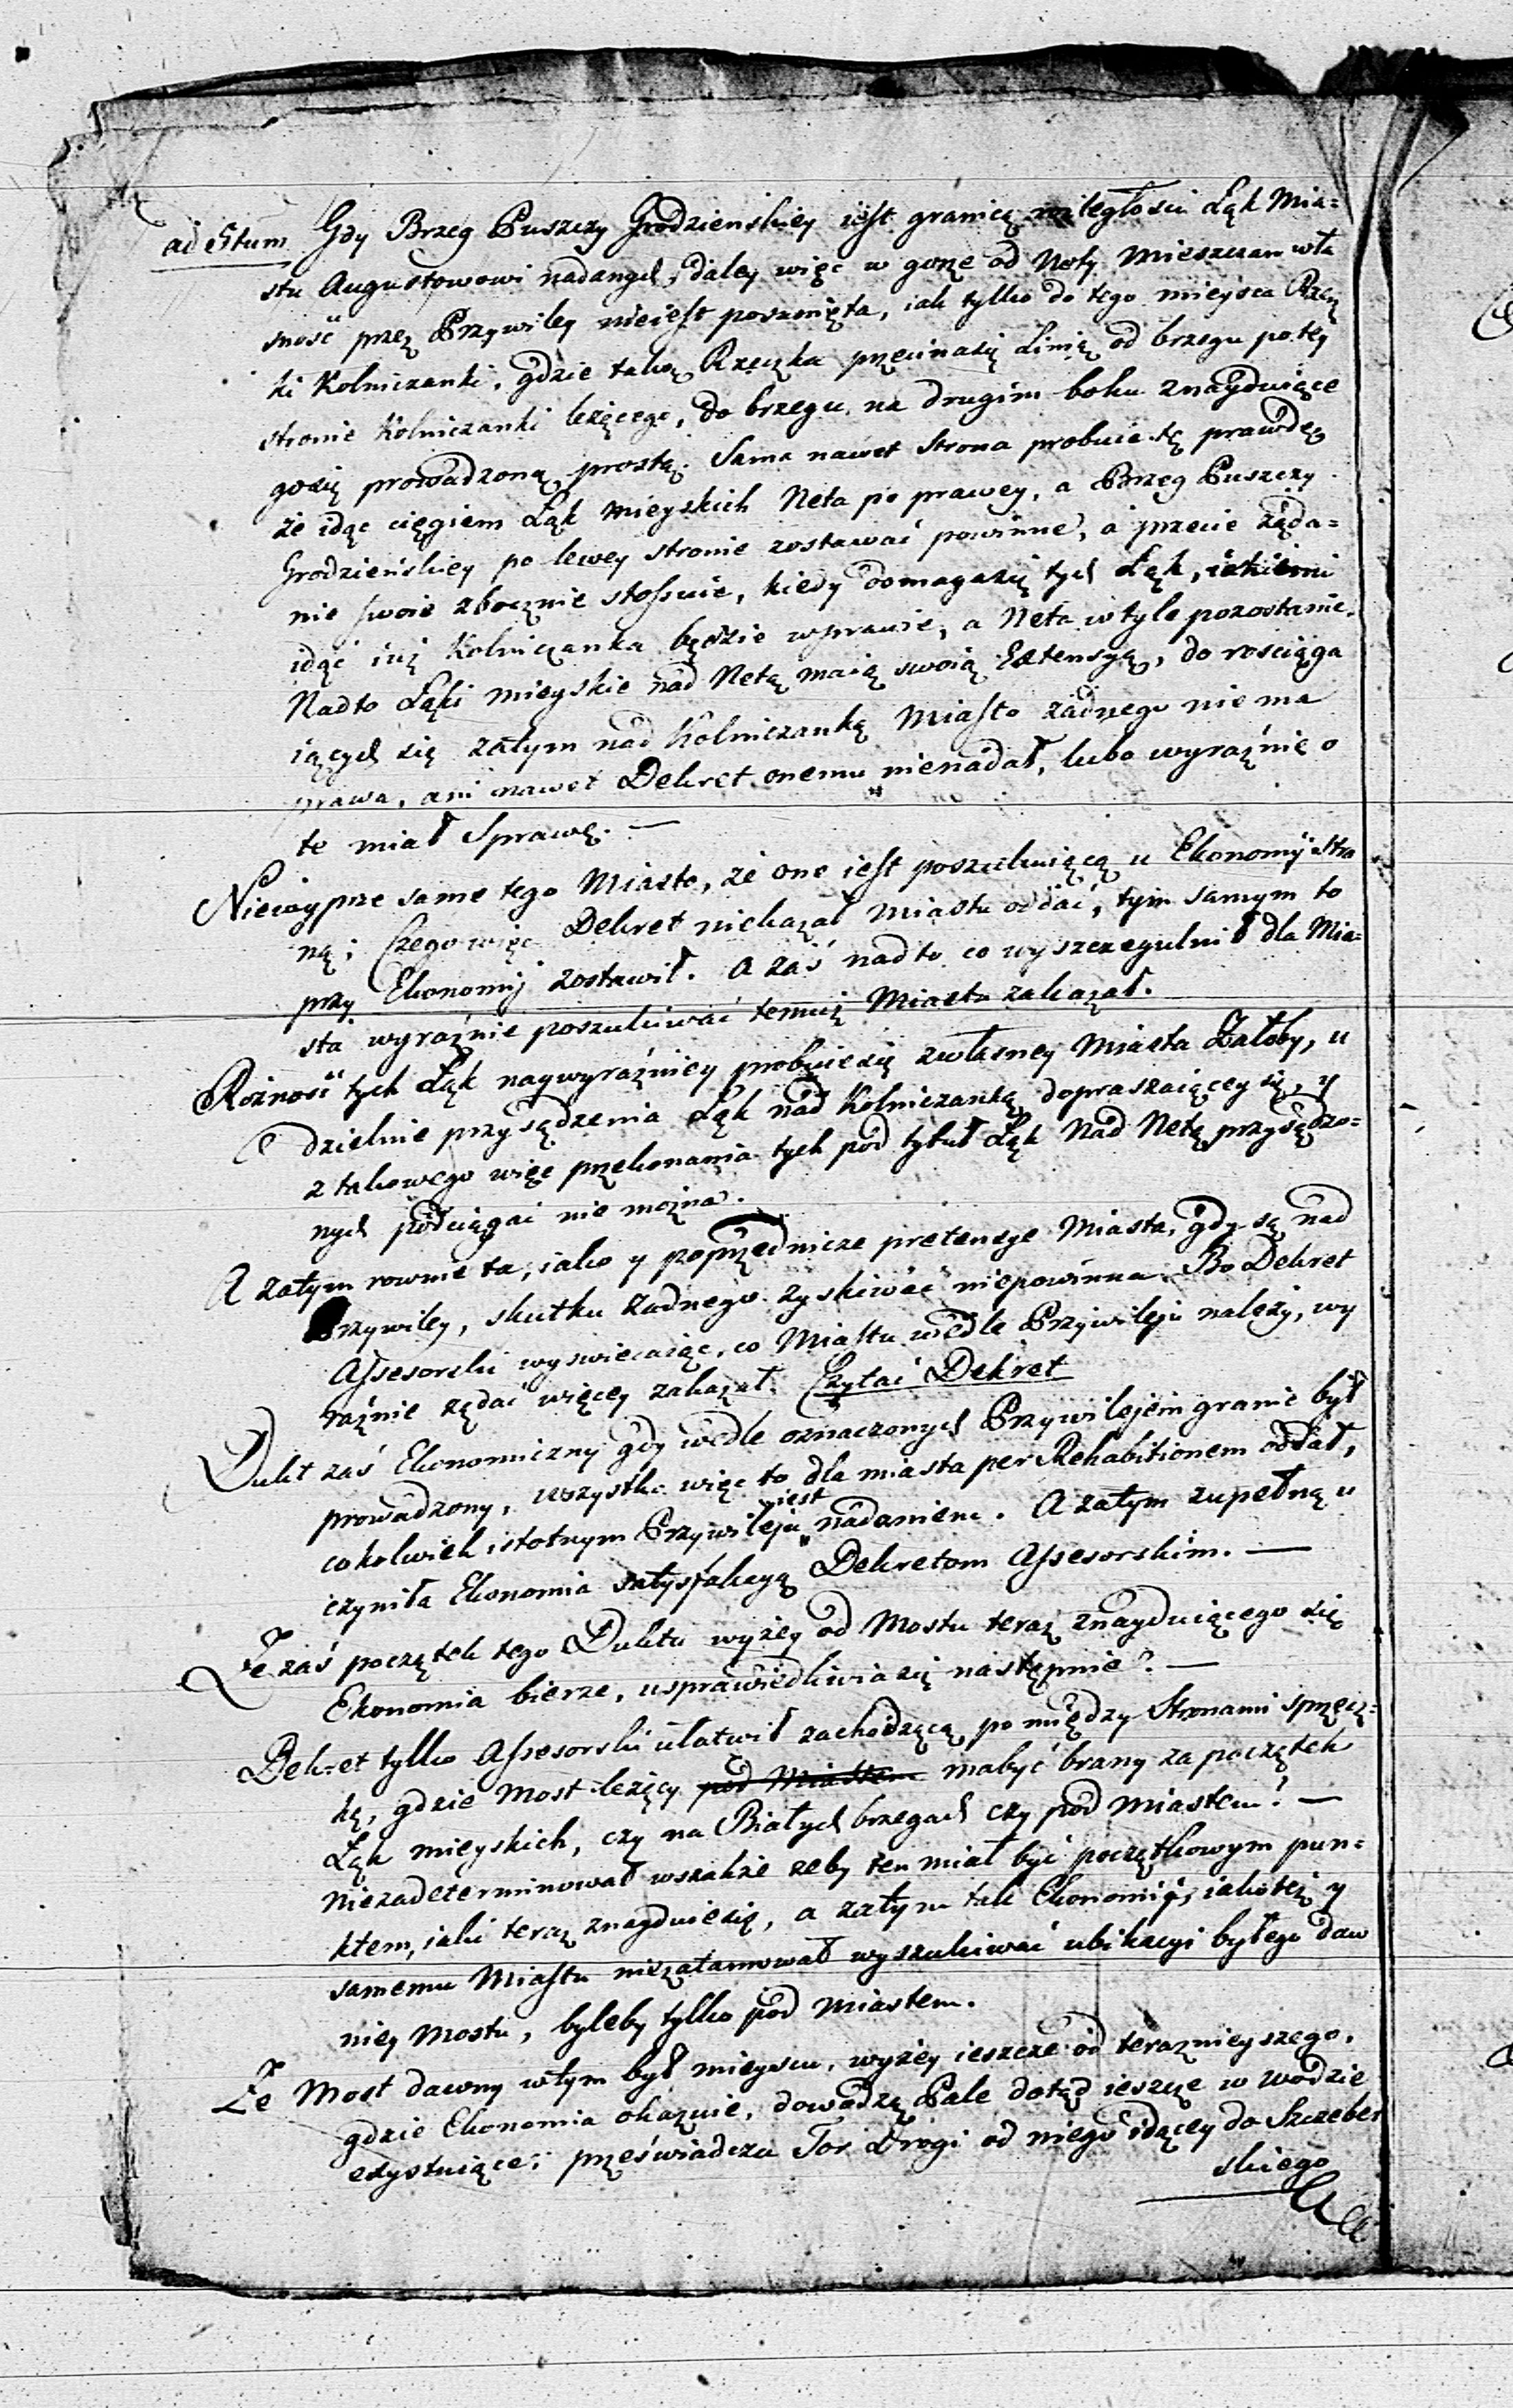 ad 5tum Gdy Brzeg Puszczy Grodzienskiey iest granicą rozległości Łąk Mia=
stu Augustowowi nadanych, daley więc w gorę od Nety Mieszczan wła
sność przez Przywiley nieiest posunięta, iak tylko do tego mieysca Rzecz
ki Kolniczanki, gdzie takoż Rzeczka przecinasię Linią od brzegu po tey
stronie Kolniczanki leżącego, do brzegu na drugim boku znayduiące
gosię prowadzoną prostą. Sama nawet Strona probuie tę prawdę
że idąc cięgiem Łąk mieyskich Neta po prawey, a Brzeg Puszczy
Grodzieńskiey po lewey stronie zostawać powinne, a przecie żąda=
nie swoie zbocznie stosuie, kiedy domagasię tych Łąk, iakiemi
idąc iuż Kolniczanka będzie wprawie, a Neta w tyle pozostanie.
Nadto Łąki mieyskie nad Netą maią swoią Extensyą, do rosciąga
iących się zatym nad Kolniczanką Miasto żadnego nie ma
prawa, ani nawet Dekret onemu nienadał, lubo wyraźnie o
te miał Sprawę. —
Niezayprze same tego Miasto, że one iest poszukuiącą u Ekonomij Stro
ną; Czego więc Dekret niekazał Miastu oddać, tym samym to
przy Ekonomij zostawił. A zaś nadto co wyszczegulnił dla Mia=
sta wyraźnie poszukiwać temuż Miastu zakazał.
Rożność tych Łąk naywyraźniey probuiesię zwłasney Miasta Załoby, u
dzielnie przysądzenia Łąk nad Kolniczanką dopraszaiącey się, y
z takowego więc przekonania tych pod tytuł Łąk Nad Netą przysądzo=
nych podciągać nie można.
A zatym rownie ta, iako y poprzednicze pretensye Miasta, gdy są nad
Przywiley, skutku żadnego zyskiwać niepowinna. Bo Dekret
Assesorski wyswiecaiąc, co Miastu wedle Przywileju należy, wy
raźnie żądać więcey zakazał. Czytać Dekret
Dukt zaś Ekonomiczny gdy wedle oznaczonych Przywilejem granic był
prowadzony, wszystko więc to dla miasta per Rehabitionem oddał,
cokolwiek istotnym Przywileju iest nadaniem. A zatym zupełną u
czyniła Ekonomia satysfakcyą Dekretom Assesorskim. —
Że zaś początek tego Duktu wyżey od Mostu teraz znayduiącego się
Ekonomia bierze, usprawiedliwiasię następnie? —
Dekret tylko Assesorski ułatwił zachodzącą pomiędzy Stronami sprzecz=
kę, gdzie Most leżący pod Miastem mabyć brany za początek
Łąk mieyskich, czy na Białych brzegach czy pod miastem? —
niezadeterminował wszakże zeby ten miał być początkowym pun=
ktem, iaki teraz znayduiesię, a zatym tak Ekonomij, iakoteż y
samemu Miastu niezatamował wyszukiwać ubikacyi byłego daw
niey Mostu, byleby tylko pod miastem.
Że Most dawny wtym był mieyscu, wyżey ieszcze od teraznieyszego,
gdzie Ekonomia okazuie, dowodzą Pale dotąd ieszcze w wodzie
exystuiące; przeświadcza Tor Drogi od niego idącey do Szczeber
skiego